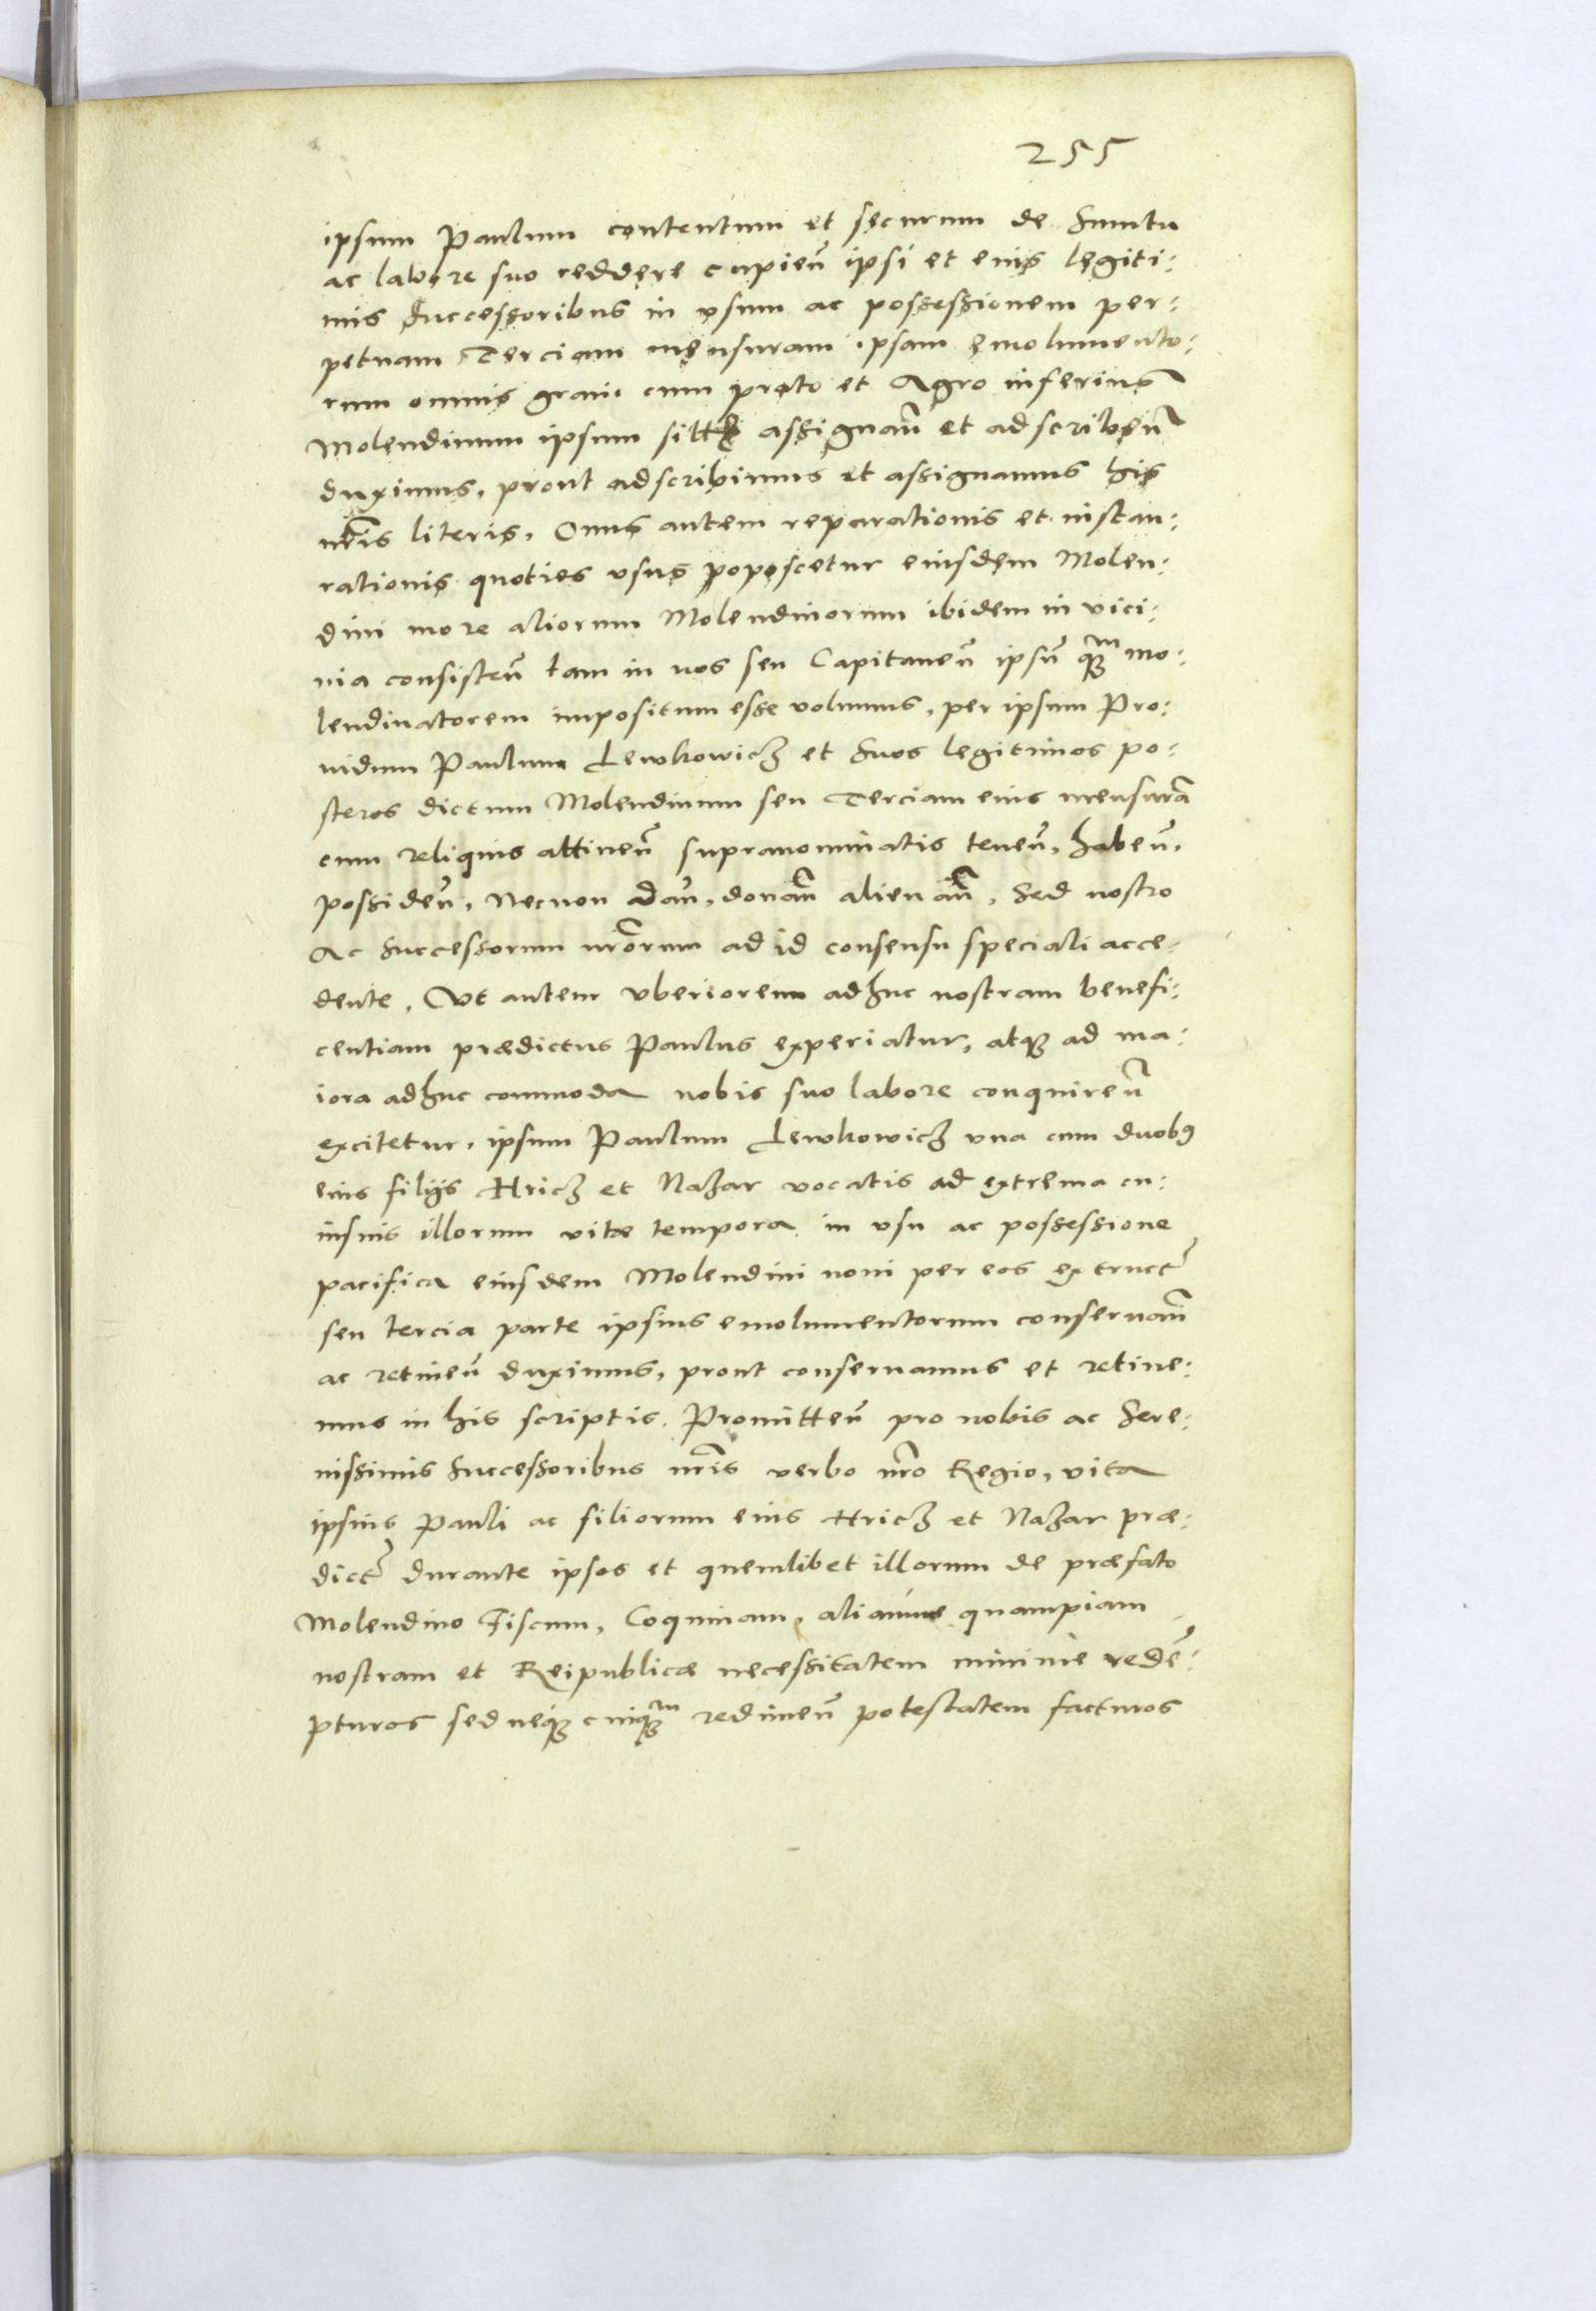 255
ipsum Paulum contentum et securum de Sumtu
ac labore suo reddere cupień ipsi et eius legiti:
mis Successoribus in vsum ac possessionem per:
petuam Terciam mensuram ipsam emolumento:
rum omnis grani cum prato et Agro inferius
Molendinum ipsum assignań et adscribeń
duximus, prout adscribimus et assignamus his
nr̃is literis. Onus autem reparationis et instau:
rationis quoties vsus poposcetur eiusdem Molen:
dini more aliorum Molendinorum ibidem in vici:
nia consisteń tam in nos seu Capitaneũ ipsũ q̃ꝫm mo:
lendinatorem impositum esse volumus, per ipsum Pro:
uidum Paulum Lewkowicz et Suos legitimos po:
steros dictum Molendinum seu Terciam eius mensurã
cum reliquis attineń supranominatis teneń, habeń,
possideń, Necnon dań, donań alienań, Sed nostro
Ac Successorum nr̃orum ad id consensu speciali acce:
dente. Vt autem vberiorem adhuc nostram benefi:
centiam prædictus Paulus experiatur, atqꝫ ad ma:
iora adhuc commoda nobis suo labore conquireń
excitetur, ipsum Paulum Lewkowicz vna cum duobꝰ
eius filijs Hricz et Nazar vocatis ad extrema cu:
iusuis illorum vitæ tempora in vsu ac possessione
pacifica eiusdem Molendini noui per eos extruct̃
seu tercia parte ipsius emolumentorum conseruań
ac retineń duximus, prout conseruamus et retine:
mus in his scriptis. Promitteń pro nobis ac Sere:
nissimis Successoribus nr̃is verbo nr̃o Regio, vita
ipsius Pauli ac filiorum eius Hricz et Nazar præ:
dict̃ durante ipsos et quemlibet illorum de præfato
Molendino Fiscum, Coquinam, aliamue quampiam
nostram et Reipublicæ necessitatem minime redẽ:
pturos sed neqꝫ cuiqꝫm redimeń potestatem facturos